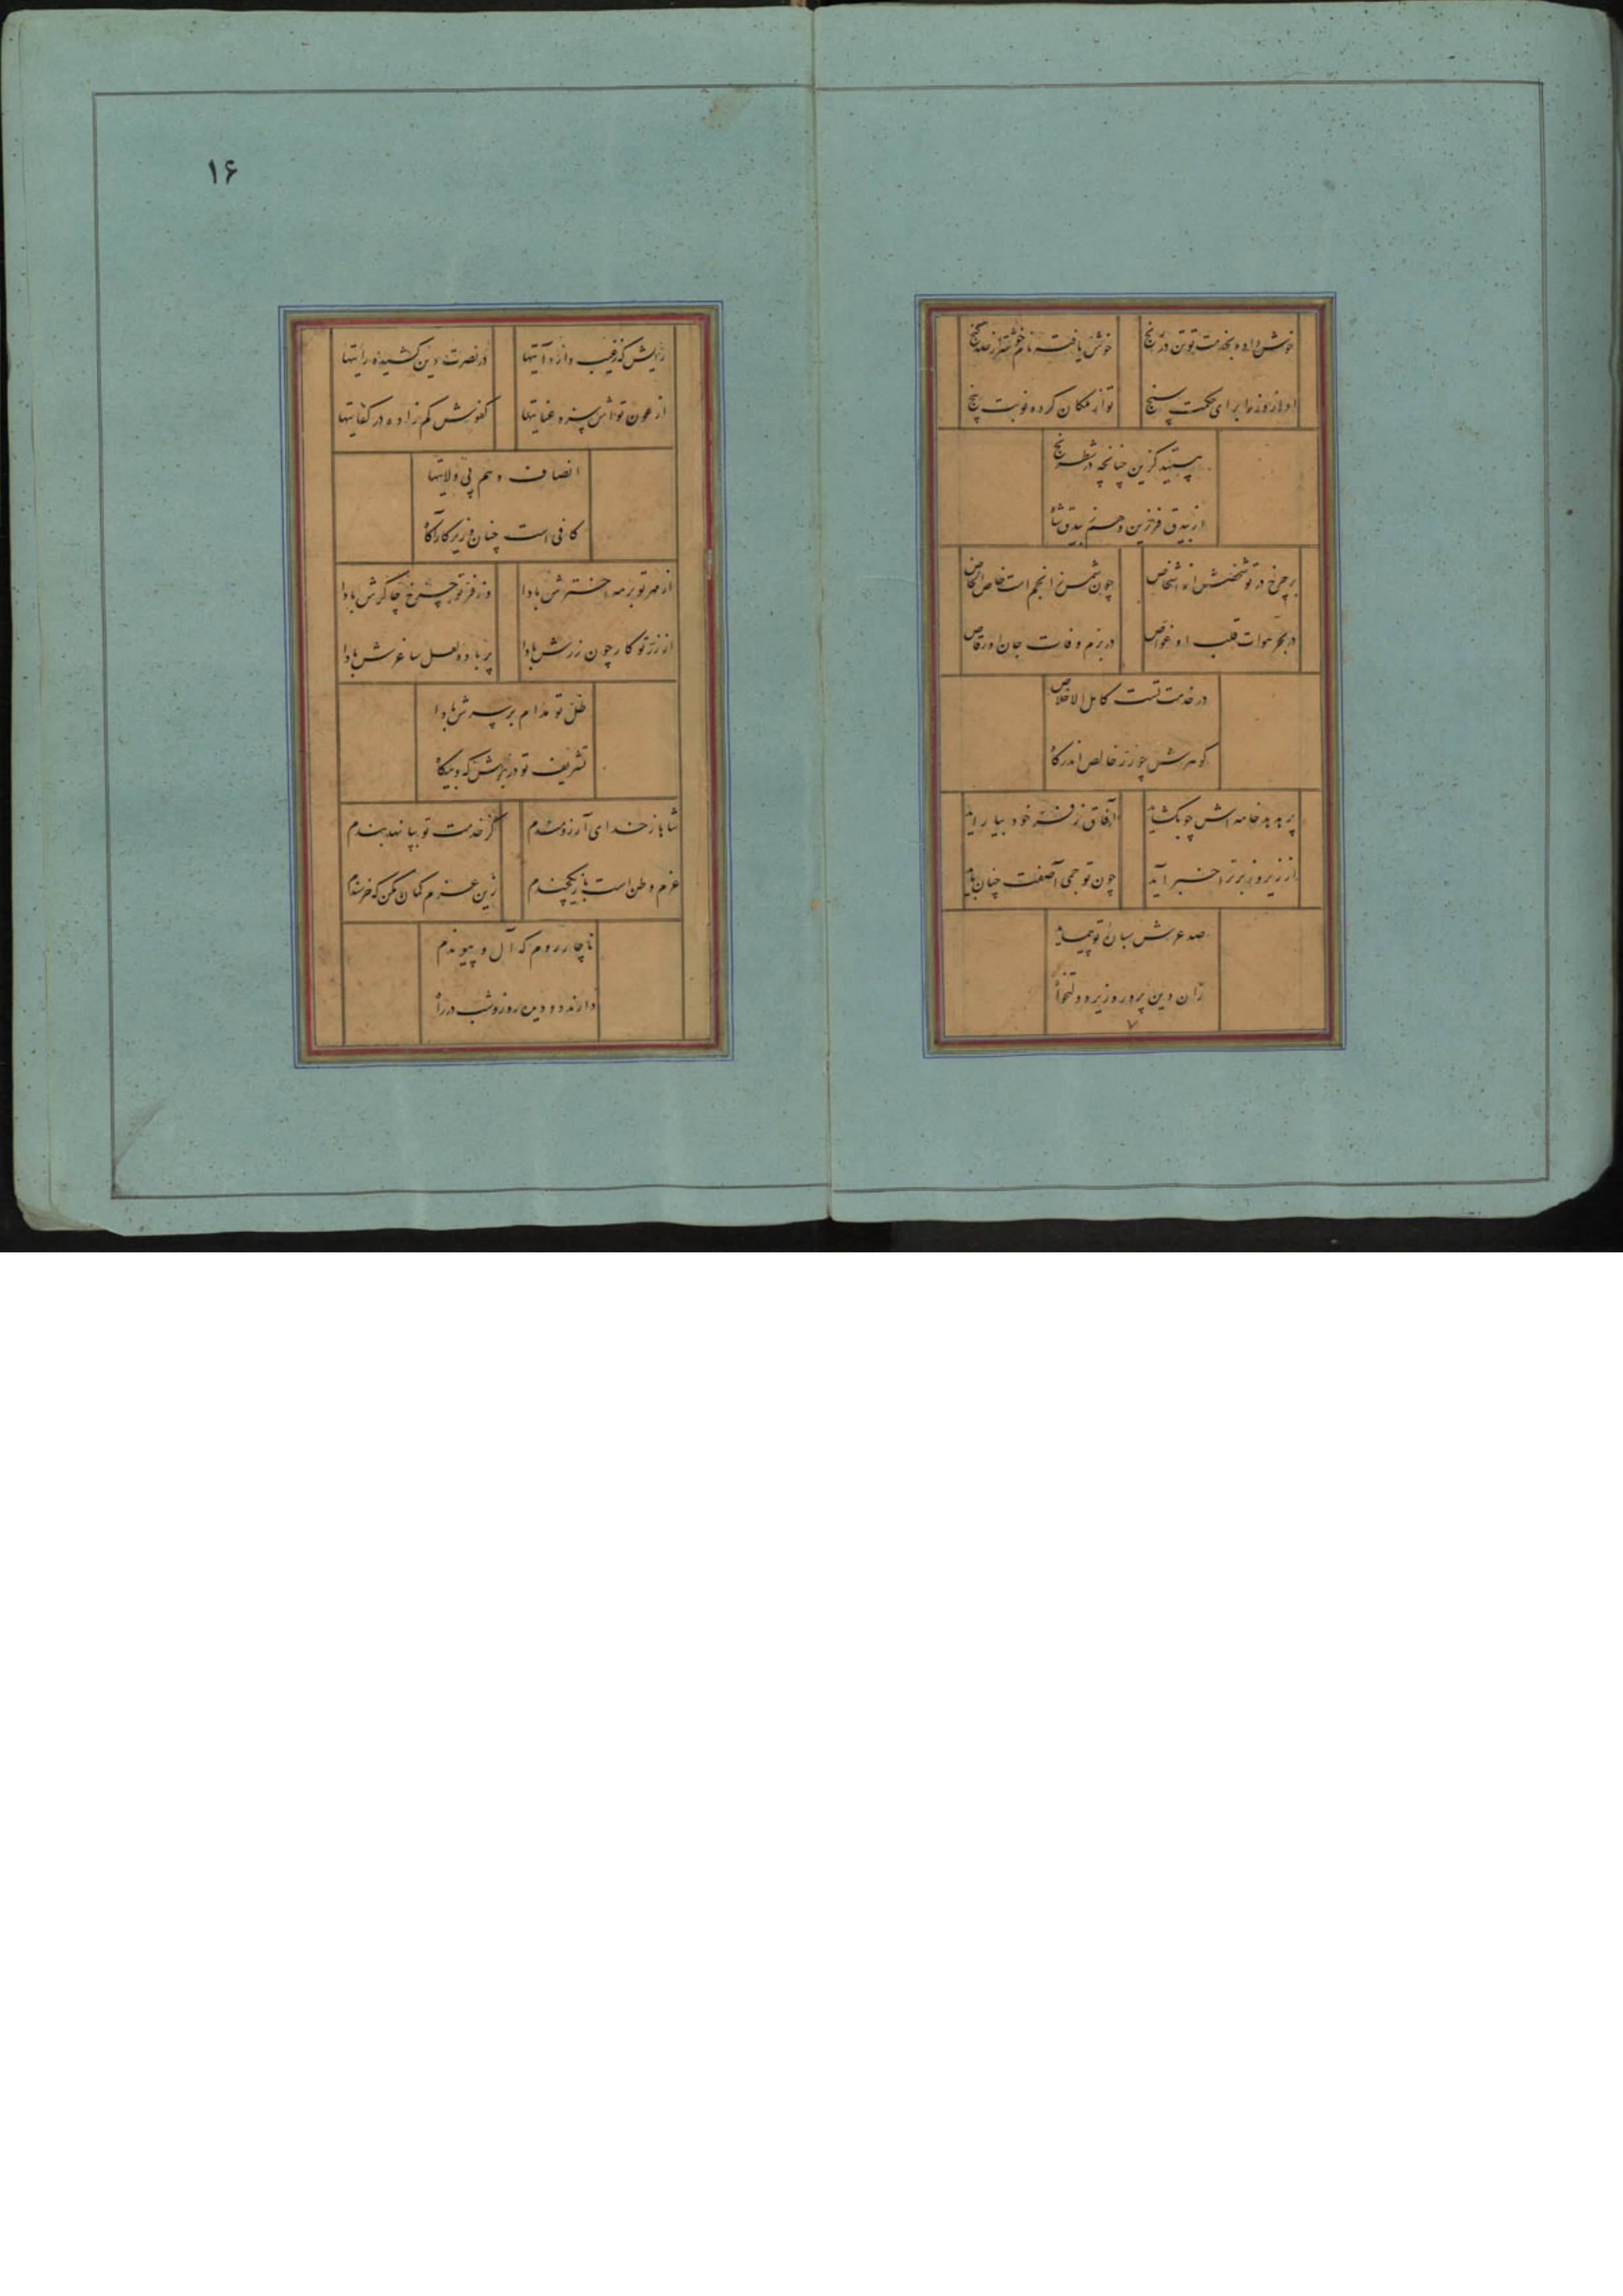 خوش داده بخدمت تو تن در رنج
خوش یافته نام خوشتر از صد گنج
او از وزرا برای حکمت سنج
تو از ملکان کرده نوبت پنج
گزین چنانچه در شطرنج
از بیدق فرزین و هم بیدق شاه
بر چرخ در تو شخصش از اشخاص
چون شمس ز انجم است خاص الخاص
در بحر هوات قلب او غواص
در بزم وفات جان او رقاص
در خدمت تست کامل الاخلاص
گوهرش چو زر خالص اندر گاه
پر هدهد خامه اش چو بگشاید
آفاق ز فر خود بیاراید
از زیر و زبر ترا خبر آید
چون تو جمی آصفت چنان باید
صد عرش بسان تو بپیماید
زان دین پرور وزیر دولتخواه
۷
۱۶
رایش که ز غیب دارد آیتها
در نصرت دین کشیده رایتها
از عون تواش سزد عنایتها
کفوش کم زاده در کفایتها
انصاف دهم پی ولایتها
کافی است چنان وزیر کارآگاه
از مهر تو بر مه اخترش بادا
وز فر تو چرخ چاکرش بادا
از زر تو کار چون زرش بادا
پر باده لعل ساغرش بادا
ظل تو مدام بر سرش بادا
تشریف تو در برش گه و بیگاه
شاها ز خدای آرزومندم
کز خدمت تو بپا نهد بندم
عزم وطن است باز یکچندم
زین عزم گمان مکن که خرسندم
ناچار روم که آل و پیوندم
دارند دو دیده روز و شب در راه